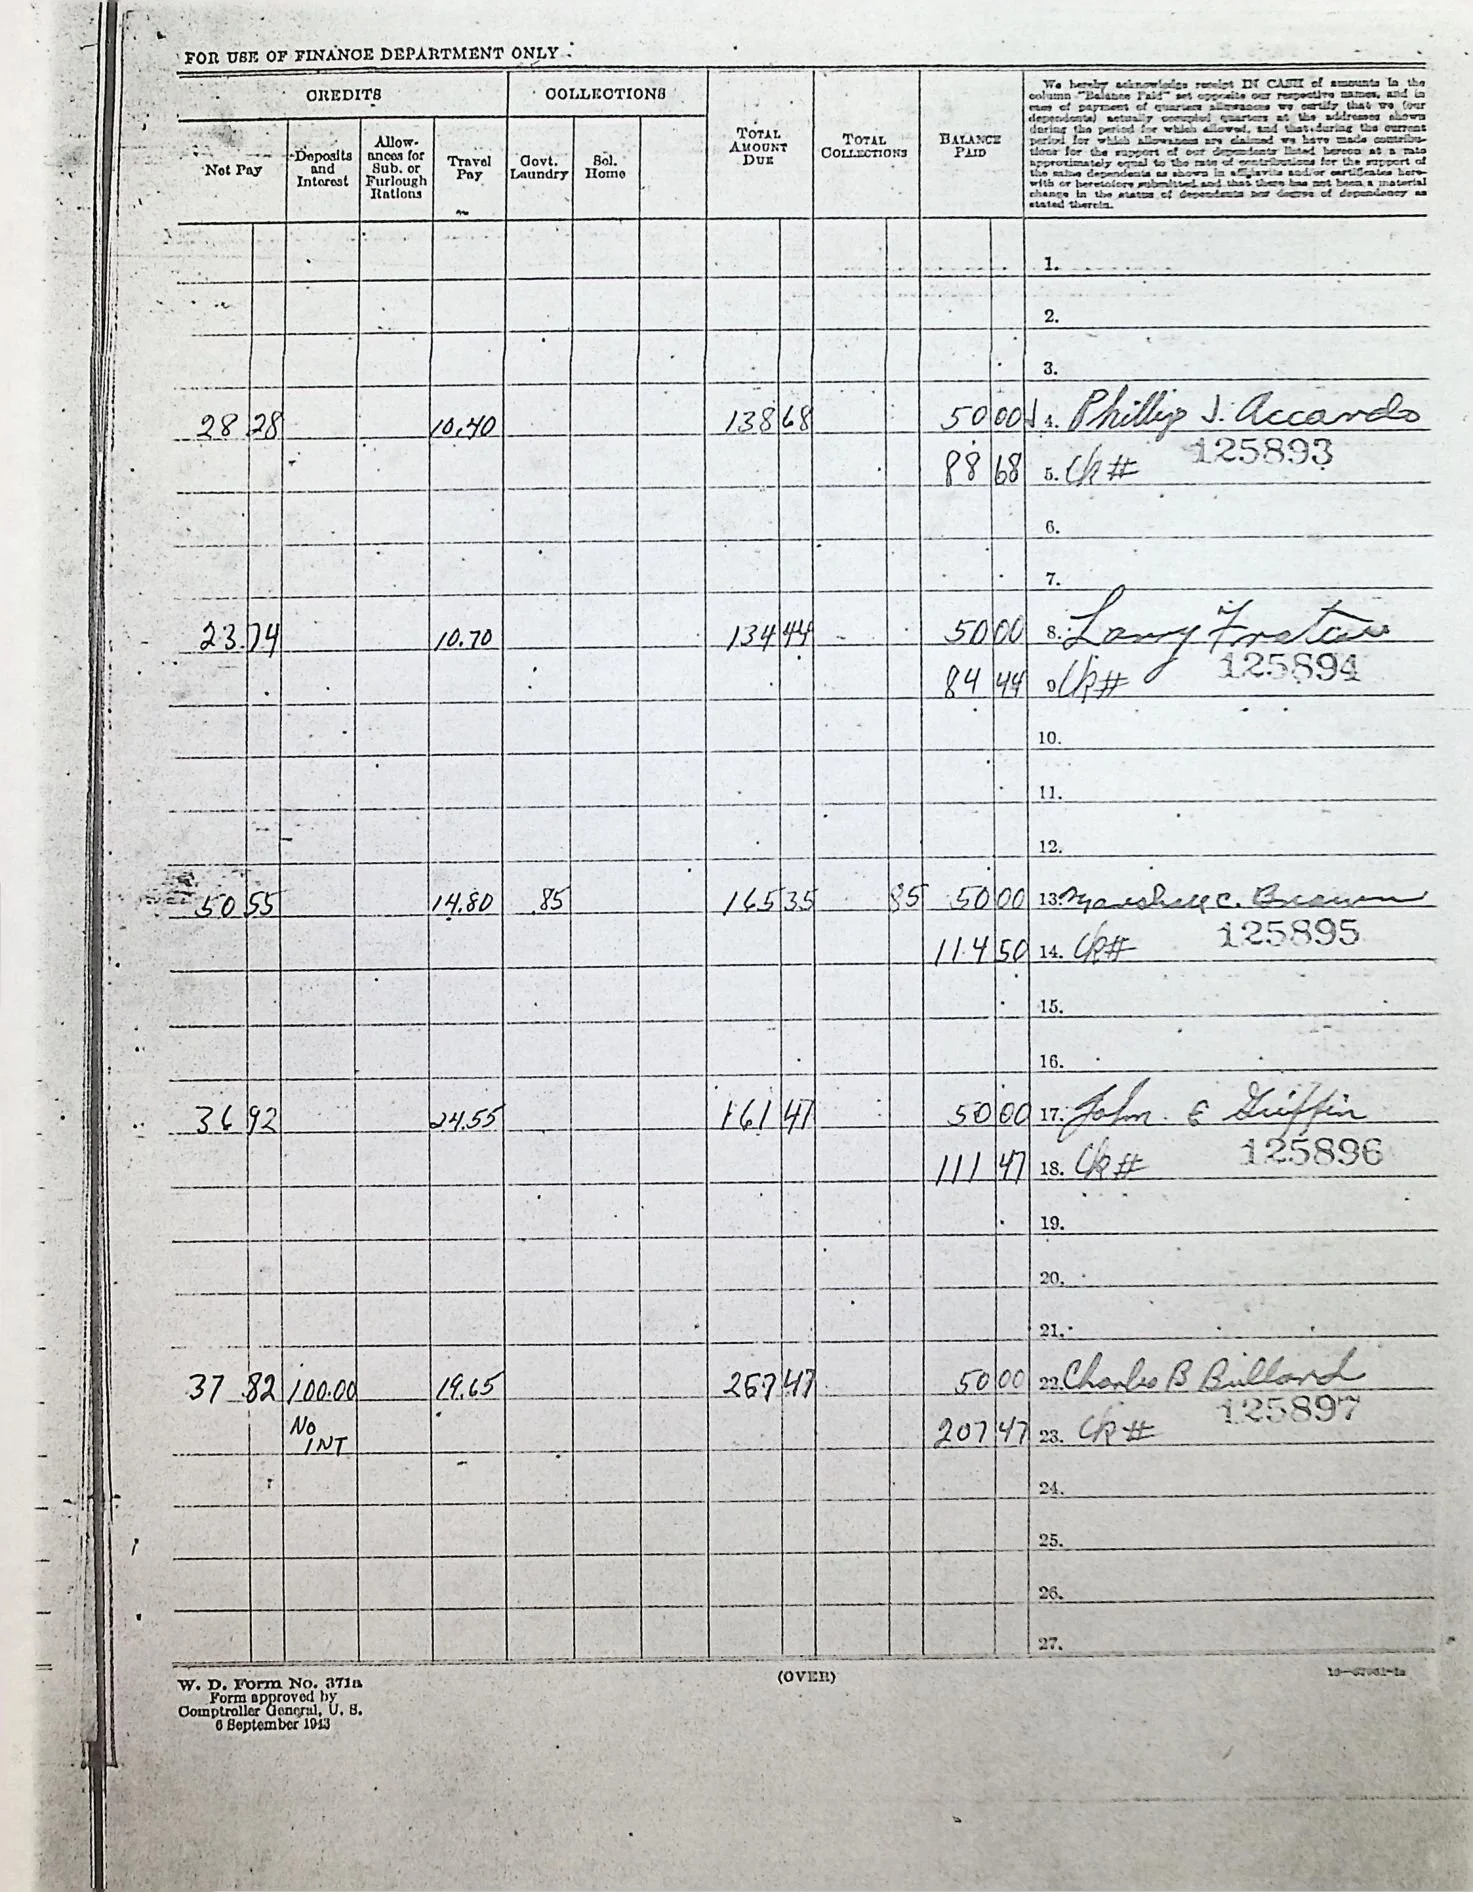 FOR USE OF FINANCE DEPARTMENT ONLY
CREDITS COLLECTIONS
Net Pay
Deposits and Interest
Allowances for Sub. or Furlough Rations
Travel Pay
Govt. Laundry
Sol. Home
TOTAL AMOUNT DUE
TOTAL COLLECTIONS
BALANCE PAID
We hereby acknowledge receipt IN CASH of amounts in the
column "Balance Paid" set opposite our respective names, and in
case of payment of quarters allowances we certify that we (our
dependents) actually occupied quarters at the addresses shown
during the period for which allowed, and that during the current
period for which allowances are claimed we have made contribu-
tions for the support of our dependents listed hereon at a rate
approximately equal to the rate of contributions for the support of
the same dependents as shown in affidavits and/or certificates here-
with or heretofore submitted and that there has not been a material
change in the status of dependents nor degree of dependency as
stated therein.
1.
2.
3.
28 28 10.40 138 68 50 00 4. Phillip J. Accardo
125893
88 68 5. Ck#
6.
7.
23.74 10.70 134 44 50 00 8. Larry
125894
84 44 9 Ck#
10.
11.
12.
50 55 14.80 .85 165 35 85 50 00 13. Marshall C. Brown
125895
114 50 14. Ck#
15.
16.
36 92 24.55 161 47 50 00 17. John E Griffin
125896
111 47 18. Ck#
19.
20.
21.
37 82 100.00 19.65 257 47 50 00 22. Charles B Bullard
125897
No INT 207 47 23. Ck#
24.
25.
26.
27.
W. D. Form No. 371a (OVER)
Form approved by
Comptroller General, U. S.
6 September 1943